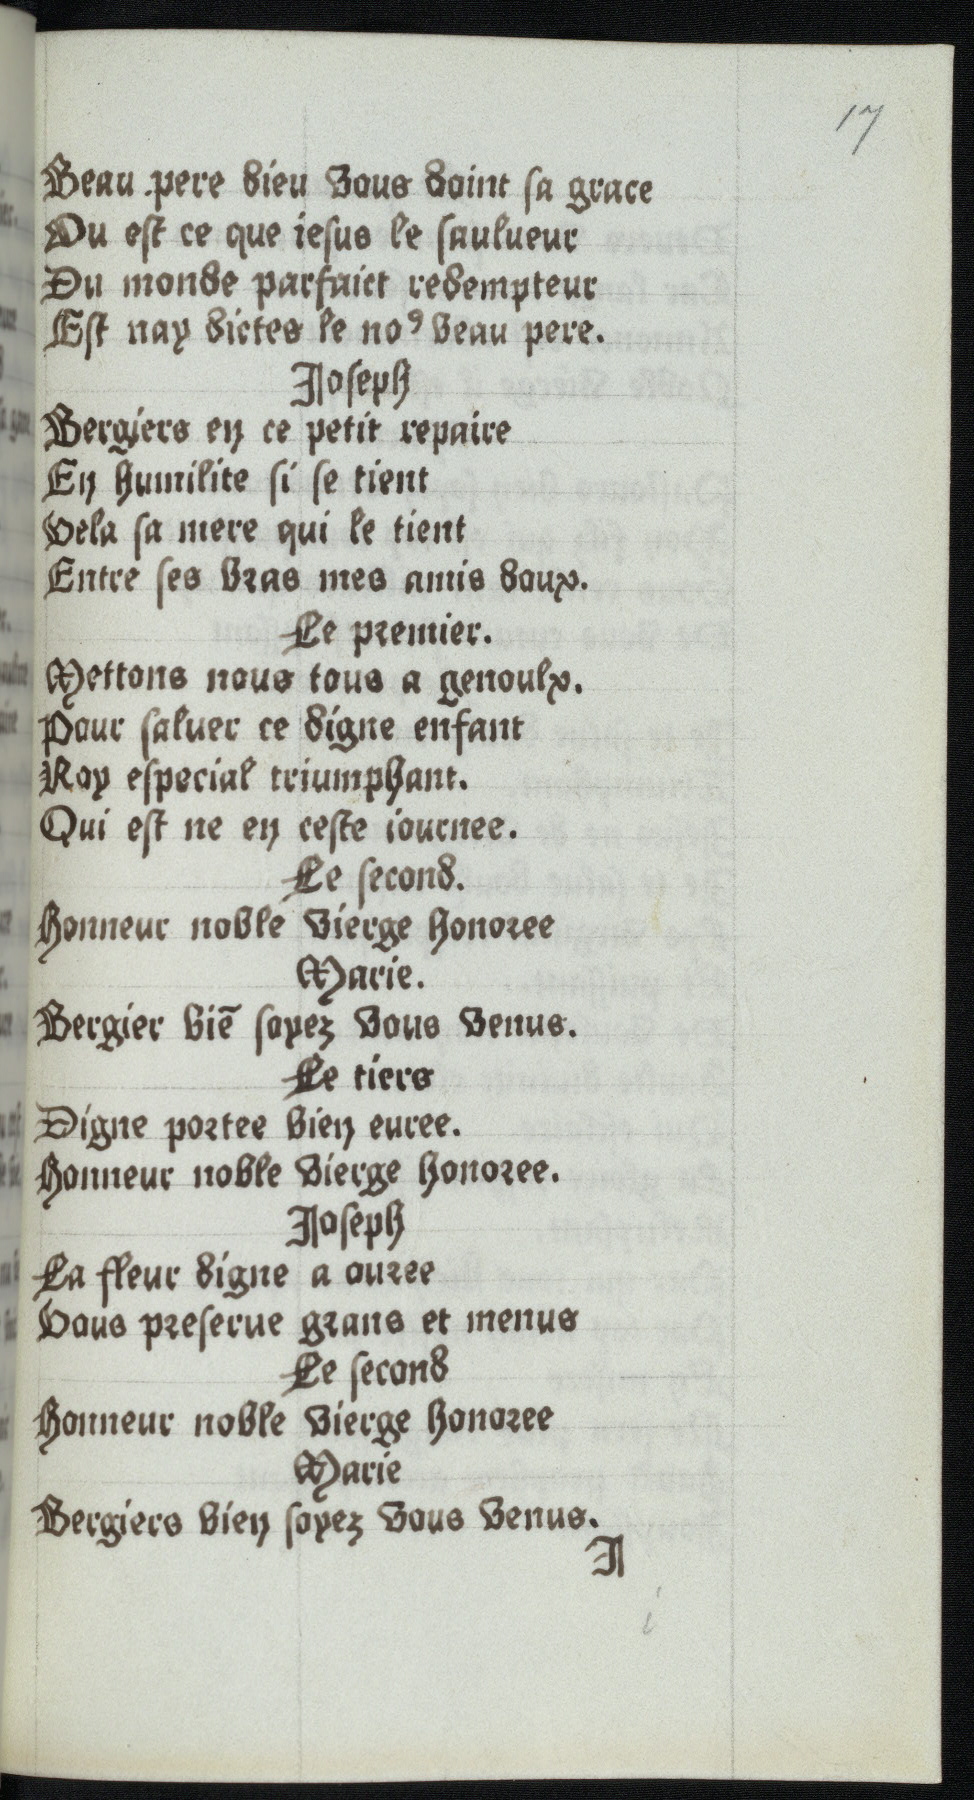 17
Beau pere dieu vous doint sa grace
Ou est ce que iesus le saulueur
Du monde parfaict redempteur
Est nay dictes le noꝰ beau pere.
Joseph
Bergiers en ce petit repaire
En humilite si se tient
Vela sa mere qui le tient
Entre ses bras mes amis doux.
Le premier.
Mettons nous tous a genoulx.
Pour saluer ce digne enfant
Roy especial triumphant.
Qui est ne en ceste iournee.
Le second.
Honneur noble vierge honoree
Marie.
Bergier biē soyez vous venus.
Le tiers
Digne portee bien euree.
Honneur noble vierge honoree.
Joseph
La fleur digne a ouree
Vous preserue grans et menus
Le second
Honneur noble vierge honoree
Marie
Bergiers bien soyez vous venus.
J
i